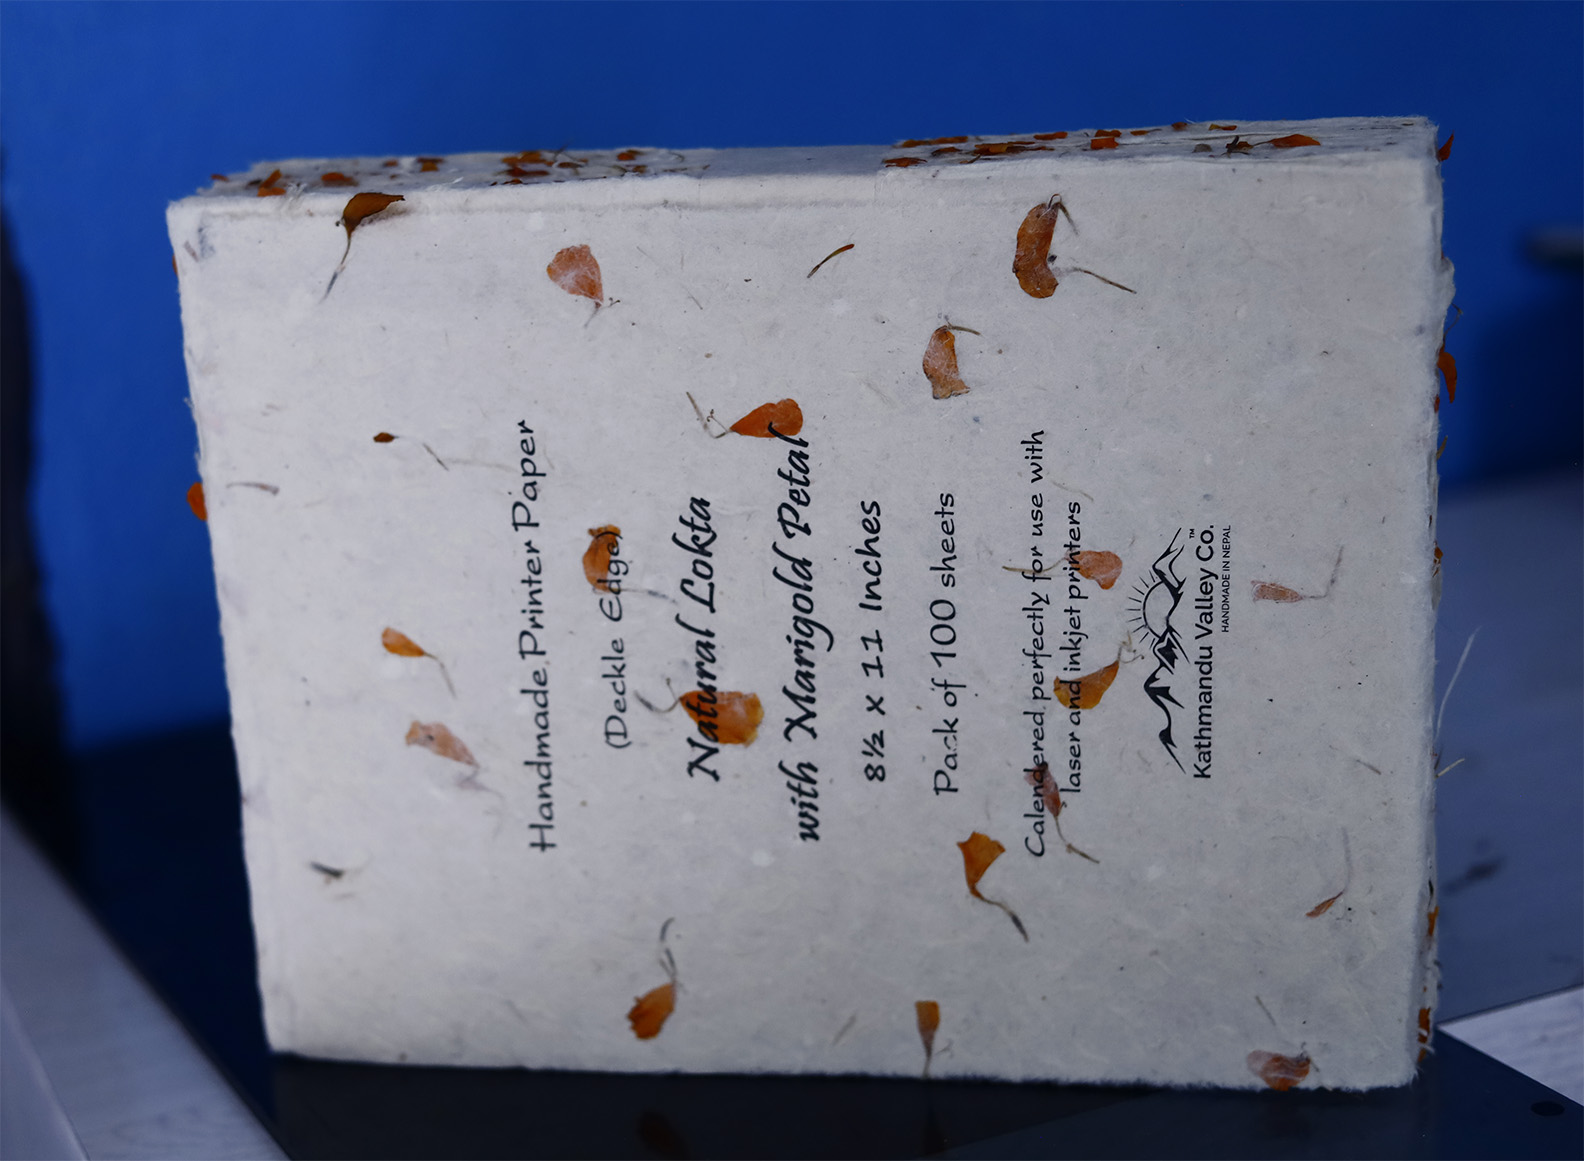 Handmade Printer Paper
(Deckle Edge)
Natural Lokta
with Marigold Petal
8½ x 11 Inches
Pack of 100 sheets
Calendered perfectly for use with
laser and inkjet printers
Kathmandu Valley Co.™
HANDMADE IN NEPAL